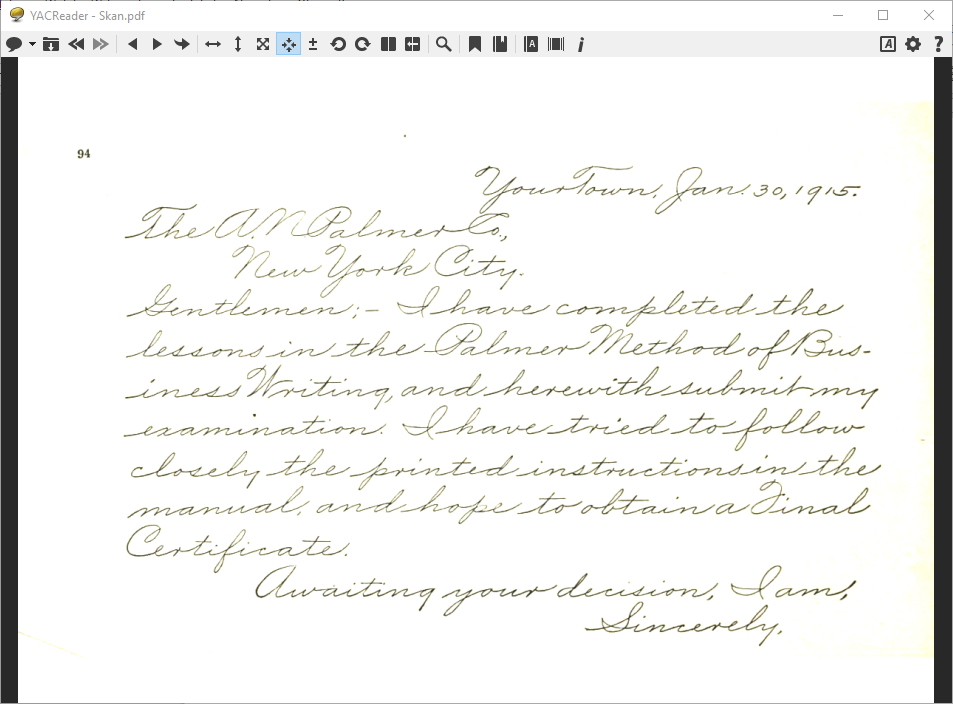 YACReader - Skan.pdf
94
Your Town, Jan. 30, 1915.
The A. N. Palmer Co.,
New York City.
Gentlemen:- I have completed the
lessons in the Palmer Method of Bus-
iness Writing, and herewith submit my
examination. I have tried to follow
closely the printed instructions in the
manual, and hope to obtain a Final
Certificate.
Awaiting your decision, I am,
Sincerely,